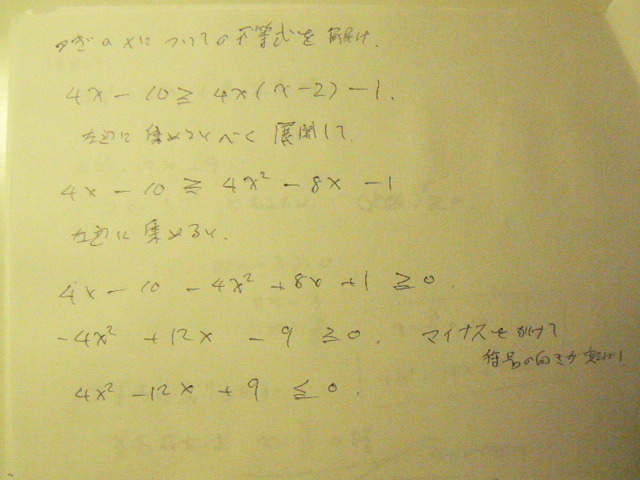 つぎのxについての不等式を解け.
4x - 10 ≧ 4x(x-2) - 1.
左辺に集めるべく 展開して.
4x - 10 ≧ 4x² - 8x - 1
左辺に集めると.
4x - 10 - 4x² + 8x + 1 ≧ 0.
-4x² + 12x - 9 ≧ 0. マイナスをかけて
符号の向きが変わり
4x² - 12x + 9 ≦ 0.